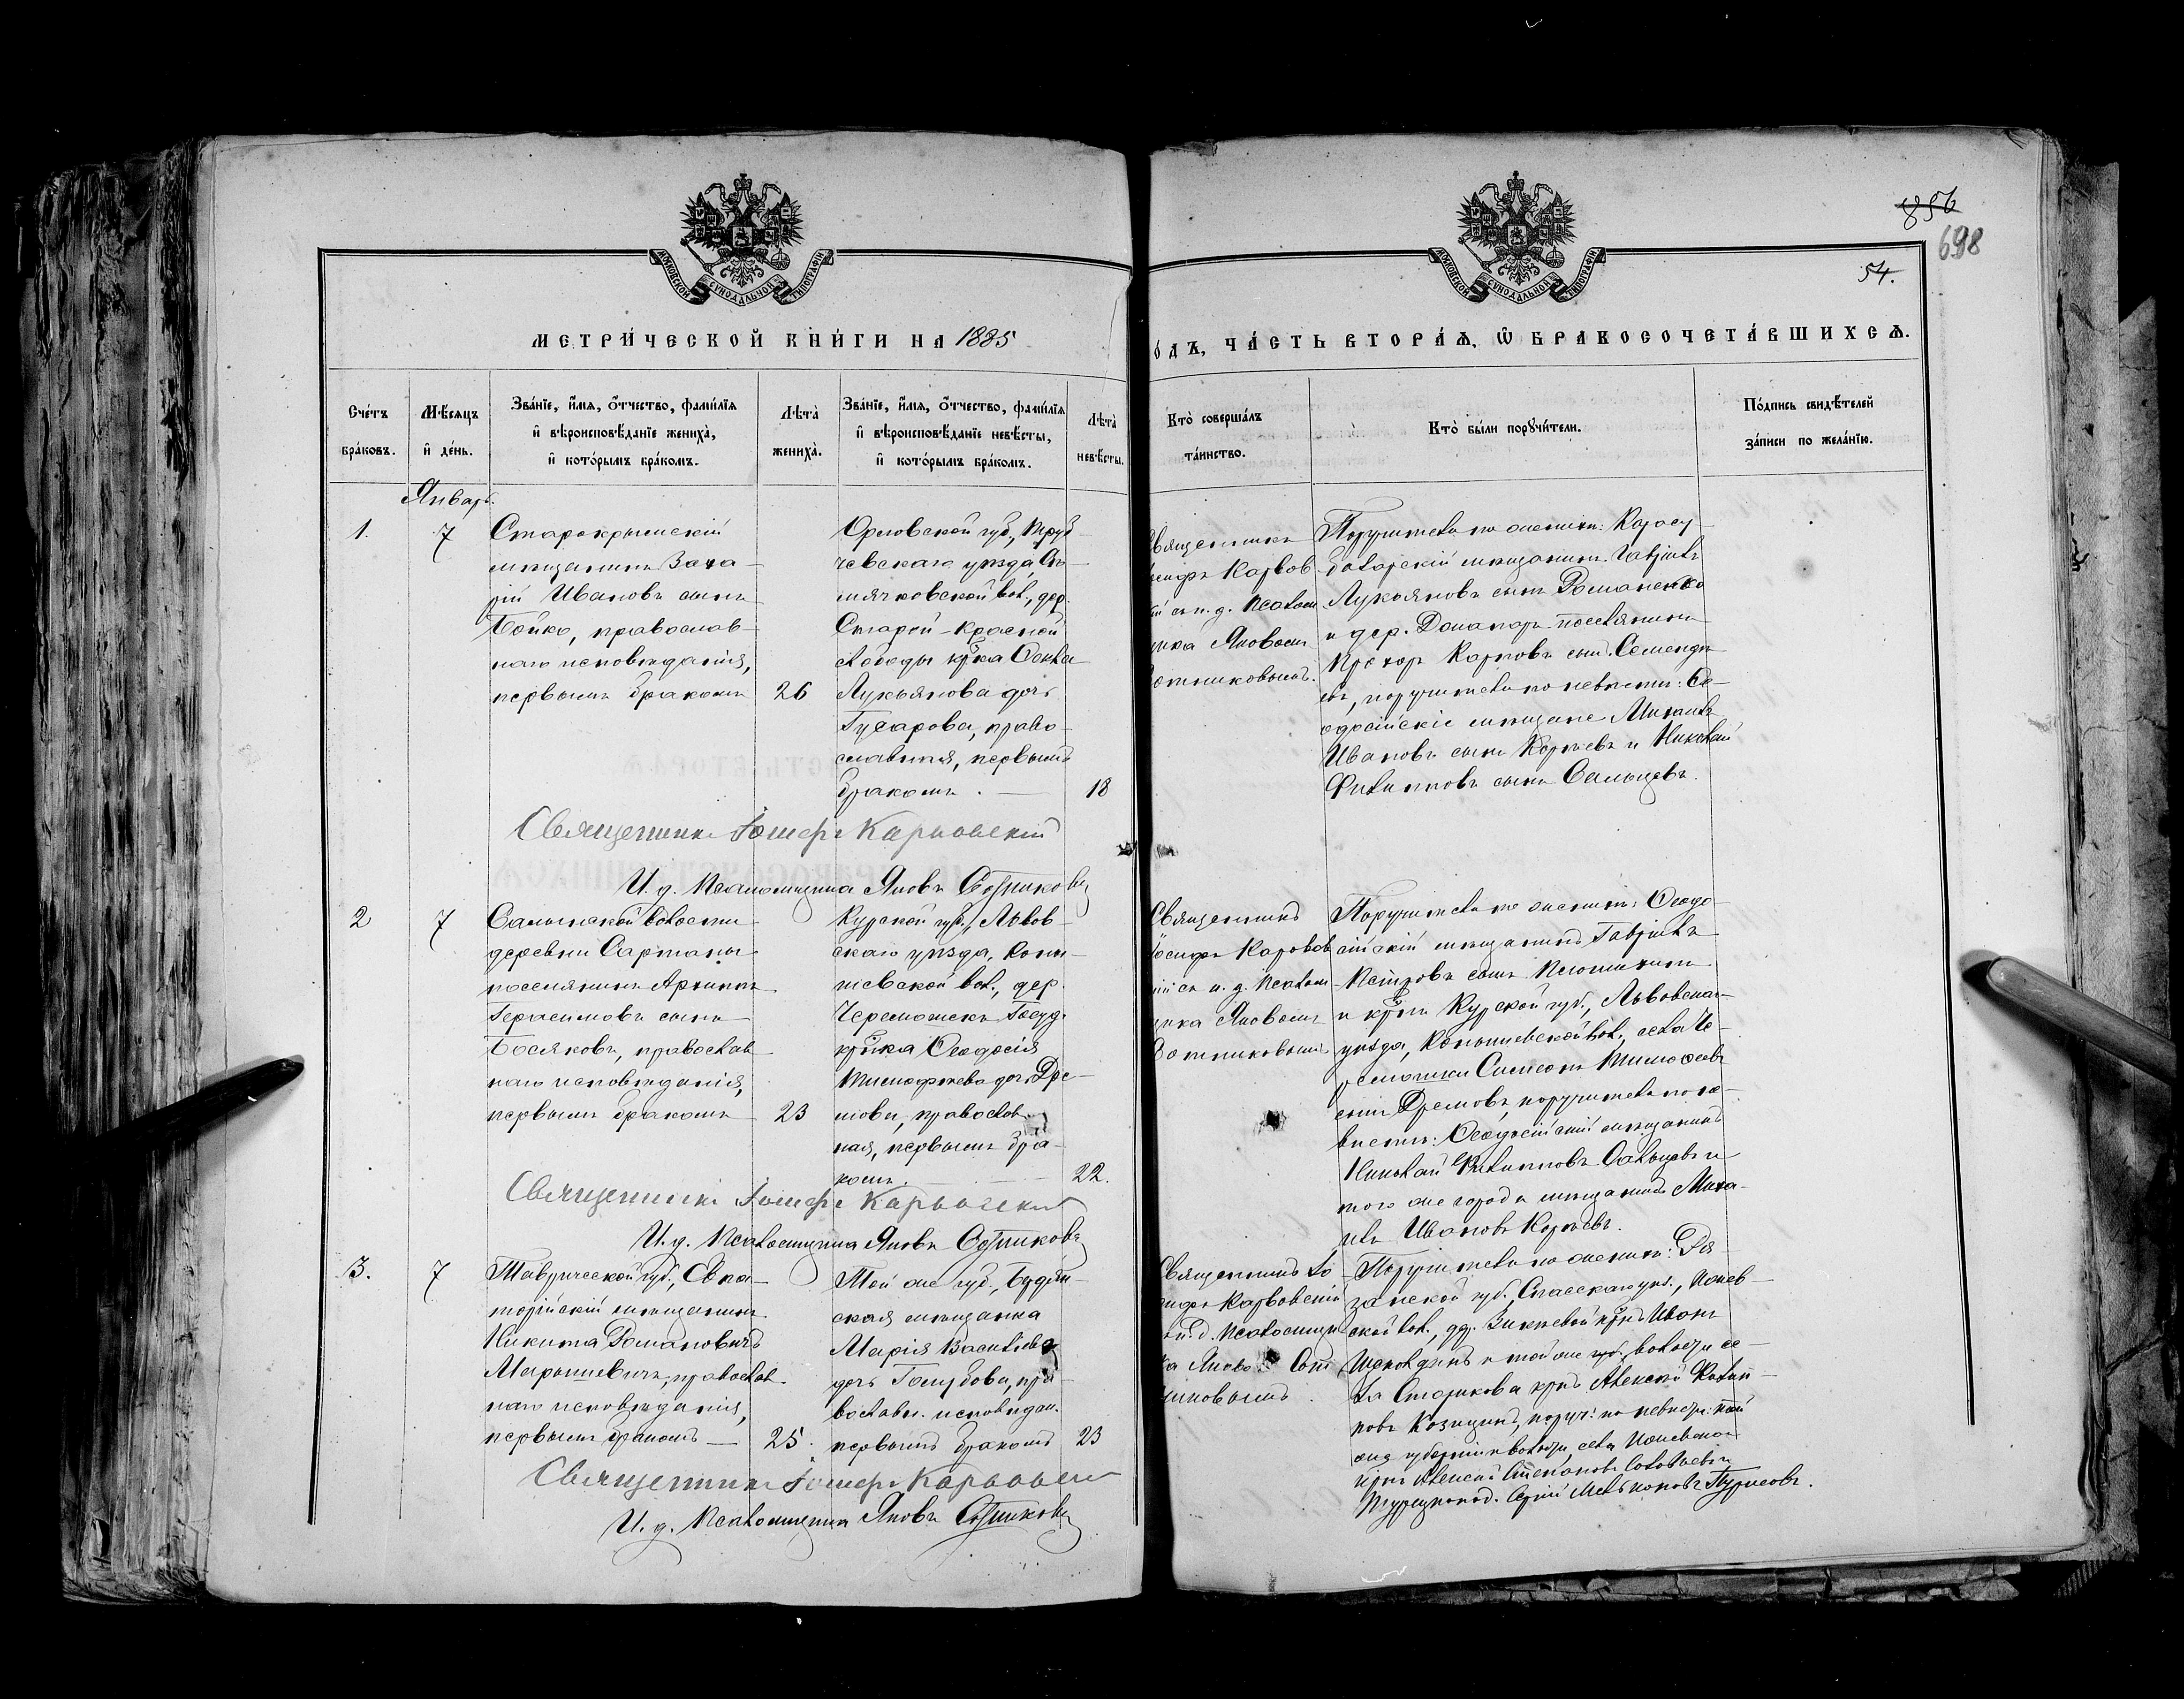 856
698
54.
МЕТРИ́ЧЕСКОЙ КНИ́ГИ НА 1885
О́ДЪ, ЧА́СТЬ ВТОРА́Ѧ, Ѡ҆ БРАКОСОЧЕТА́ВШИХСѦ.
Сче́тъ бра́ковъ.
Мѣ́сяцъ и҆ де́нь.
Зва́нїе, и҆́мѧ, ѻ҆́тчество, фами́лїѧ и҆ вѣроисповѣ́данїе жениха̀, и҆ кото́рымъ бра́комъ.
Лѣта̀ жениха̀.
Зва́нїе, и҆́мѧ, ѻ҆́тчество, фами́лїѧ и҆ вѣроисповѣ́данїе невѣ́сты, и҆ кото́рымъ бра́комъ.
Лѣта̀ невѣ́сты.
Кто̀ соверша́лъ та́инство.
Кто̀ бы́ли порꙋчи́тели.
По́дпись свидѣ́телей за́писи по жела́нїю.
Январь.
1.
7
Старокрымскій
мѣщанинъ Заха-
рій Ивановъ сынъ
Бойко, православ-
наго исповѣданія,
первымъ бракомъ
26
Орловской губ., Труб-
чевскаго уѣзда,
вол., дер.
Старой-Красной
слободы кр-ка
Лукьянова дочь
Гусарова, право-
славная, первымъ
бракомъ.
18
Священникъ
осифъ Карпов
й съ и. д. Псалом
ика Яковомъ
отниковымъ.
Поручители по женихѣ: Карасу-
базарскій мѣщанинъ Гавріилъ
Лукьяновъ сынъ Романенко
и дер. поселянинъ
Прохоръ Карповъ сынъ
евъ, поручители по невѣстѣ: Ѳе-
одосійскіе мѣщане Михаилъ
Ивановъ сынъ и Николай
Филипповъ сынъ Сальцевъ.
Священникъ Іосифъ Карповскій
И. д. Псаломщика Яковъ Сотниковъ
2
7
Салынской волости
деревни Сартаны
поселянинъ Архипъ
Герасимовъ сынъ
Босяковъ, православ
наго исповѣданія,
первымъ бракомъ
23
Курской губ., Львов-
скаго уѣзда, Коны-
шевской вол., дер.
Черемошекъ Госуд.
кр-нка Ѳеодосія
Тимофѣева дочь Дре-
мова, православ
ная, первымъ бра-
комъ.
22.
Священникъ
Іосифъ Карповс
ій съ и. д. Псалом
ика Яковомъ
Сотниковымъ
Поручители по женихѣ: Ѳеодо-
сійскій мѣщанинъ Гавріилъ
Петровъ сынъ
и кр-нъ Курской губ., Львовскаго
уѣзда, Конышевской вол., села Че-
ремошки Симеонъ Тимоѳеевъ
сынъ Дремовъ, поручители по не-
вѣстѣ: Ѳеодосійскій мѣщанинъ
Николай Филипповъ Сальцевъ и
того же города мѣщанинъ Миха-
илъ Ивановъ
Священникъ Іосифъ Карповскій
И. д. Псаломщика Яковъ Сотниковъ
3.
7
Таврической губ., Евпа-
торійскій мѣщанинъ
Никита Романовичъ
православ.
наго исповѣданія,
первымъ бракомъ
25.
Той же губ.,
ская мѣщанка
Марія Васильева
дочь Голубова, пра-
вославн. исповѣдан.
первымъ бракомъ
23
Священникъ Іо
сифъ Карповскій
и. д. Псаломщи
ка Яковъ Сот
никовымъ.
Поручители по женихѣ: Ря-
занской губ., Спасскаго уѣз.,
ской вол., дер. кр-нъ Иванъ
и той же губ., волости се-
ла Старикова кр-нъ Алексѣй Филип-
повъ Козицинъ, поруч: по невѣстѣ: той
же губерніи и волости, села
кр-нъ Алексѣй Степановъ Соловьевъ и
Сергій Турпсовъ.
Священникъ Іосифъ Карповскій
И. д. Псаломщика Яковъ Сотниковъ